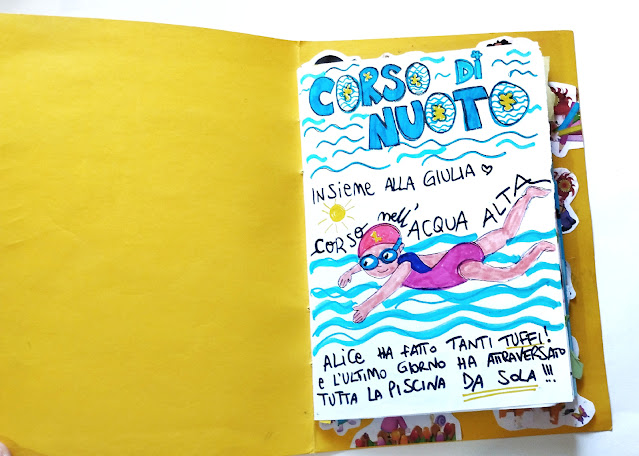 CORSO DI
NUOTO
INSIEME ALLA GIULIA
CORSO nell' ACQUA ALTA
ALICE HA FATTO TANTI TUFFI!
E L'ULTIMO GIORNO HA ATTRAVERSATO
TUTTA LA PISCINA DA SOLA!!!